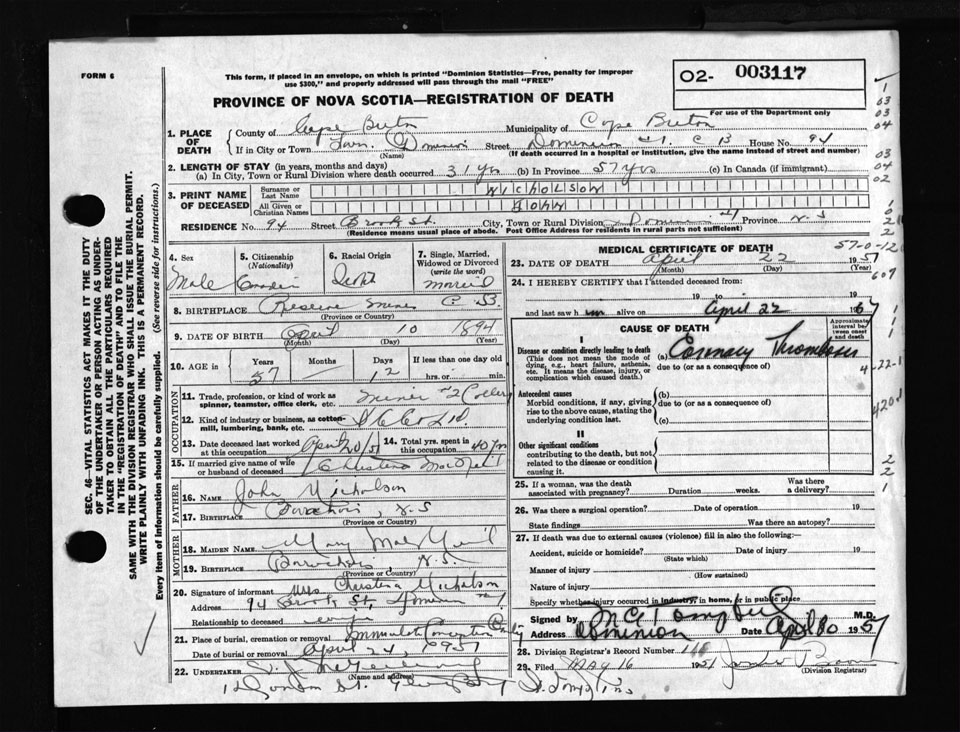 FORM 6
This form, if placed in an envelope, on which is printed "Dominion Statistics—Free, penalty for improper
use $300," and properly addressed will pass through the mail "FREE"
02- 003117
For use of the Department only
PROVINCE OF NOVA SCOTIA—REGISTRATION OF DEATH
1. PLACE OF DEATH
County of Cape Breton Municipality of Cape Breton
If in City or Town Dominion Street Dominion C B House No. 94
(Name) (If death occurred in a hospital or institution, give the name instead of street and number)
2. LENGTH OF STAY (in years, months and days)
(a) In City, Town or Rural Division where death occurred 31 yrs (b) In Province 57 yrs (c) In Canada (if immigrant)
3. PRINT NAME OF DECEASED
Surname or Last Name NICHOLSON
All Given or Christian Names JOHN
RESIDENCE No. 94 Street Brook St. City, Town or Rural Division Dominion Province N.S
(Residence means usual place of abode. Post Office Address for residents in rural parts not sufficient)
4. Sex Male
5. Citizenship (Nationality)
6. Racial Origin
7. Single, Married, Widowed or Divorced (write the word) Married
8. BIRTHPLACE Reserve Mines C.B.
(Province or Country)
9. DATE OF BIRTH April 10 1894
(Month) (Day) (Year)
10. AGE in Years 57 Months Days 12 If less than one day old hrs. or min.
OCCUPATION
11. Trade, profession, or kind of work as spinner, teamster, office clerk, etc. Miner
12. Kind of industry or business, as cotton-mill, lumbering, bank, etc.
13. Date deceased last worked at this occupation April 20/51 14. Total yrs. spent in this occupation 40 yrs
15. If married give name of wife or husband of deceased Christena MacNeil
FATHER
16. NAME John Nicholson
17. BIRTHPLACE N.S
(Province or Country)
MOTHER
18. MAIDEN NAME Mary MacNeil
19. BIRTHPLACE N.S.
(Province or Country)
20. Signature of informant Mrs Christena Nicholson
Address 94 Brook St, Dominion
Relationship to deceased wife
21. Place of burial, cremation or removal Immaculate Conception
Date of burial or removal April 24, 1951
22. UNDERTAKER
(Name and address)
St. Glace Bay
MEDICAL CERTIFICATE OF DEATH
57-0-12
23. DATE OF DEATH April 22 1951
(Month) (Day) (Year)
24. I HEREBY CERTIFY that I attended deceased from:
19 to 19
and last saw h im alive on April 22 19
CAUSE OF DEATH
Approximate interval between onset and death
I
Disease or condition directly leading to death (a) Coronary Thrombosis
(This does not mean the mode of dying, e.g., heart failure, asthenia, etc. It means the disease, injury, or complication which caused death.)
due to (or as a consequence of)
Antecedent causes
Morbid conditions, if any, giving rise to the above cause, stating the underlying condition last.
(b)
due to (or as a consequence of)
(c)
II
Other significant conditions
contributing to the death, but not related to the disease or condition causing it.
25. If a woman, was the death associated with pregnancy? Duration weeks. Was there a delivery?
26. Was there a surgical operation? Date of operation 19
State findings Was there an autopsy?
27. If death was due to external causes (violence) fill in also the following:—
Accident, suicide or homicide? Date of injury 19
(State which)
Manner of injury
(How sustained)
Nature of injury
Specify whether injury occurred in industry, in home, or in public place
Signed by M.D.
Address Dominion Date 19
28. Division Registrar's Record Number
29. Filed MAY 16 1951
(Division Registrar)
SEC. 46—VITAL STATISTICS ACT MAKES IT THE DUTY
OF THE UNDERTAKER OR PERSON ACTING AS UNDER-
TAKER TO OBTAIN ALL THE PARTICULARS REQUIRED
IN THE "REGISTRATION OF DEATH" AND TO FILE THE
SAME WITH THE DIVISION REGISTRAR WHO SHALL ISSUE THE BURIAL PERMIT.
WRITE PLAINLY WITH UNFADING INK. THIS IS A PERMANENT RECORD.
Every item of information should be carefully supplied. (See reverse side for instructions.)